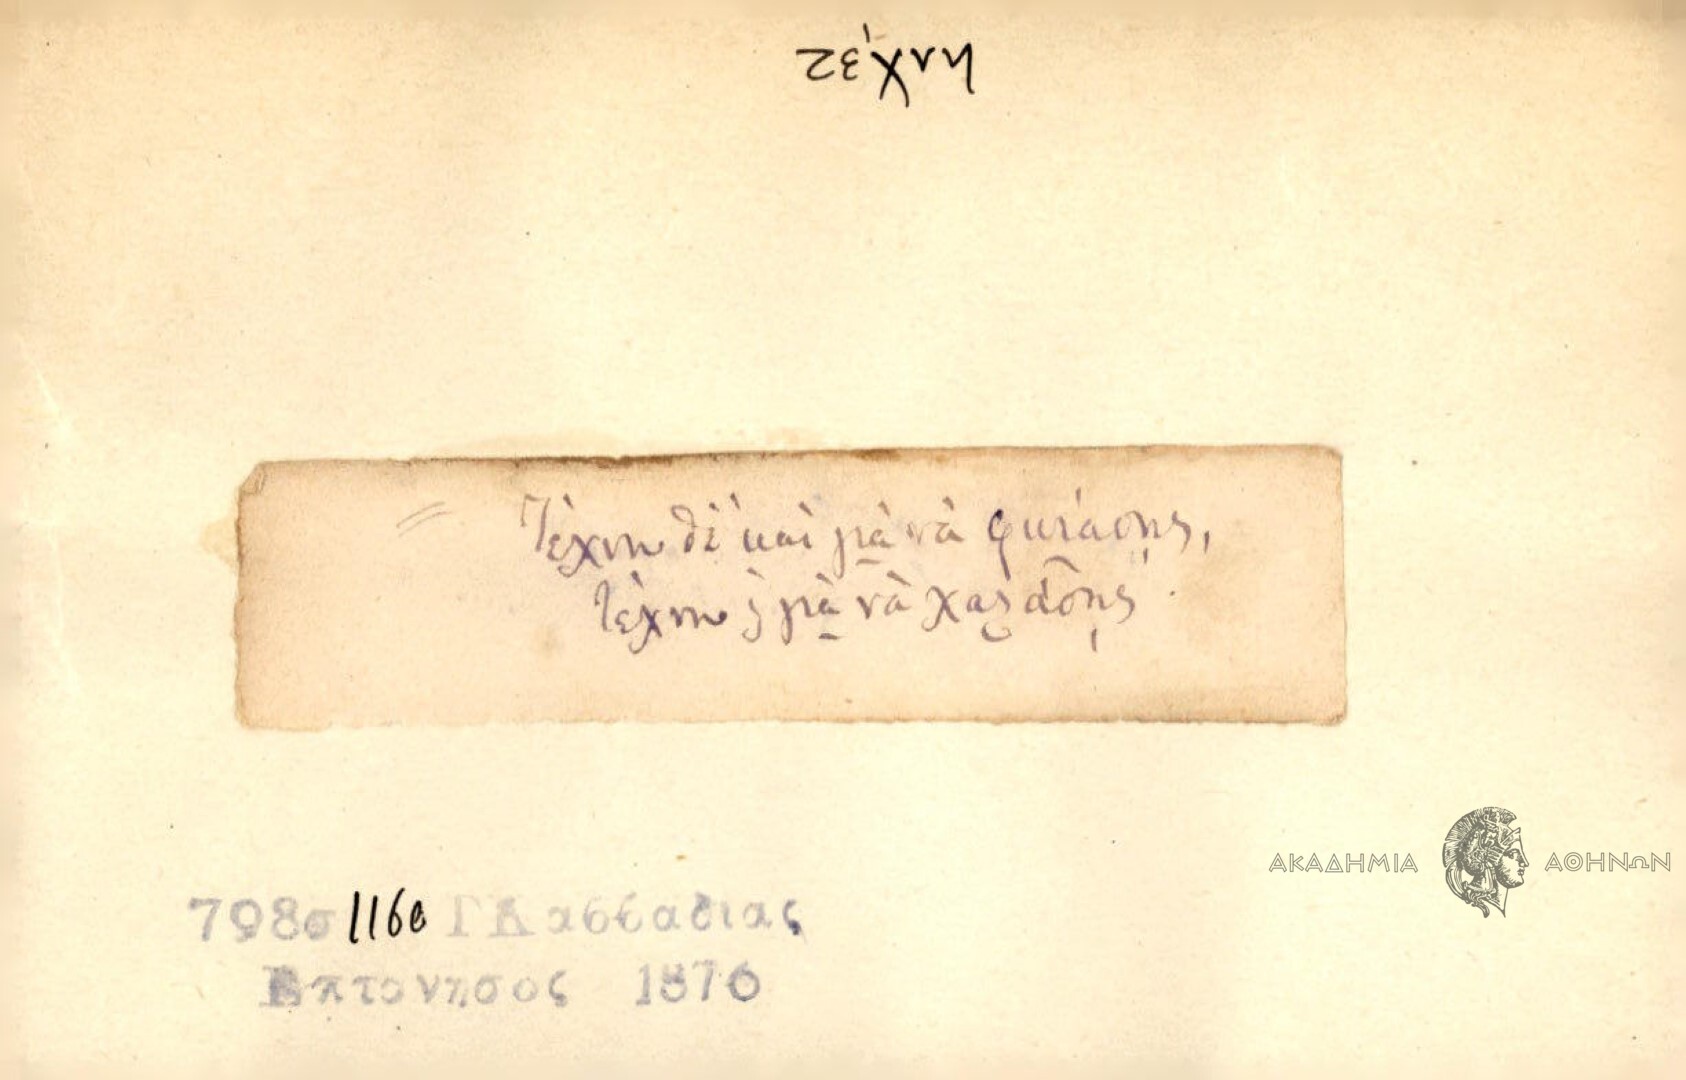 τέχνη
Τέχνη θέ' καὶ γιὰ νὰ φκιάσῃς,
τέχνη γιὰ νὰ χαλάσῃς.
ΑΚΑΔΗΜΙΑ ΑΘΗΝΩΝ
798σ 116 Γ Κασσαδιας
Επτονησος 1876